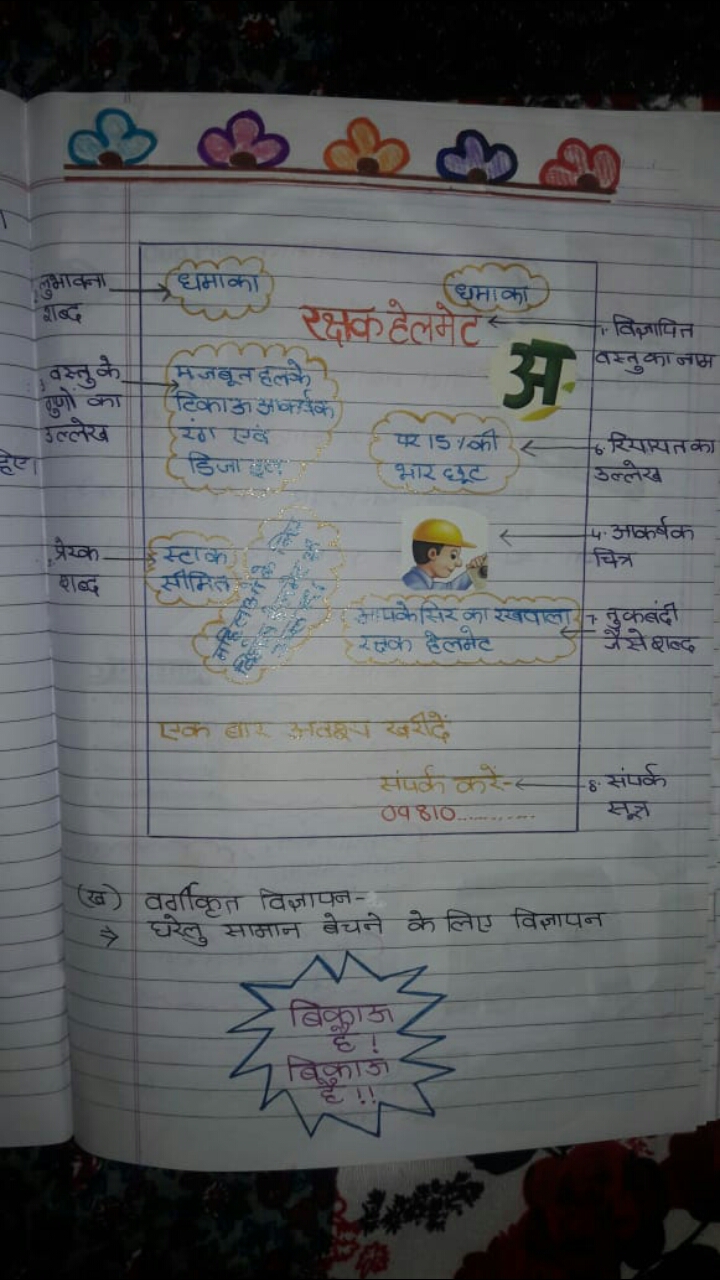 लुभावना
शब्द
धमाका
धमाका
रक्षक हेलमेट
1. विज्ञापित
वस्तु का नाम
अ
वस्तु के
गुणों का
उल्लेख
मजबूत हलके
टिकाऊ आकर्षक
रंग एवं
डिजाइन
पर 15% की
भार छूट
6. रियायत का
उल्लेख
होए।
4. आकर्षक
चित्र
प्रेरक
शब्द
स्टाक
सीमित
महिलाओं के लिए
आपके सिर का रखवाला
रक्षक हेलमेट
7 तुकबंदी
जैसे शब्द
एक बार अवश्य खरीदें
संपर्क करें-
09810..........
8. संपर्क
सूत्र
(ख) वर्गीकृत विज्ञापन-
⇒ घरेलु सामान बेचने के लिए विज्ञापन
बिकाऊ
है!
बिकाऊ
है!!